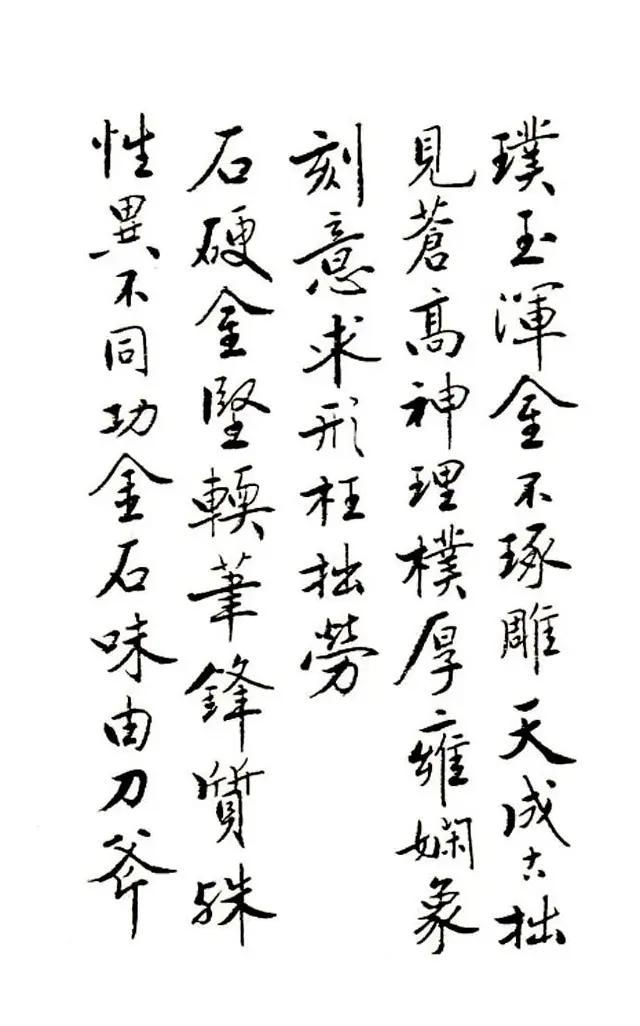 璞玉渾金不琢雕天成古拙
見蒼高神理樸厚雍嫻象
刻意求形枉拙勞
石硬金堅輭筆鋒質殊
性異不同功金石味由刀斧